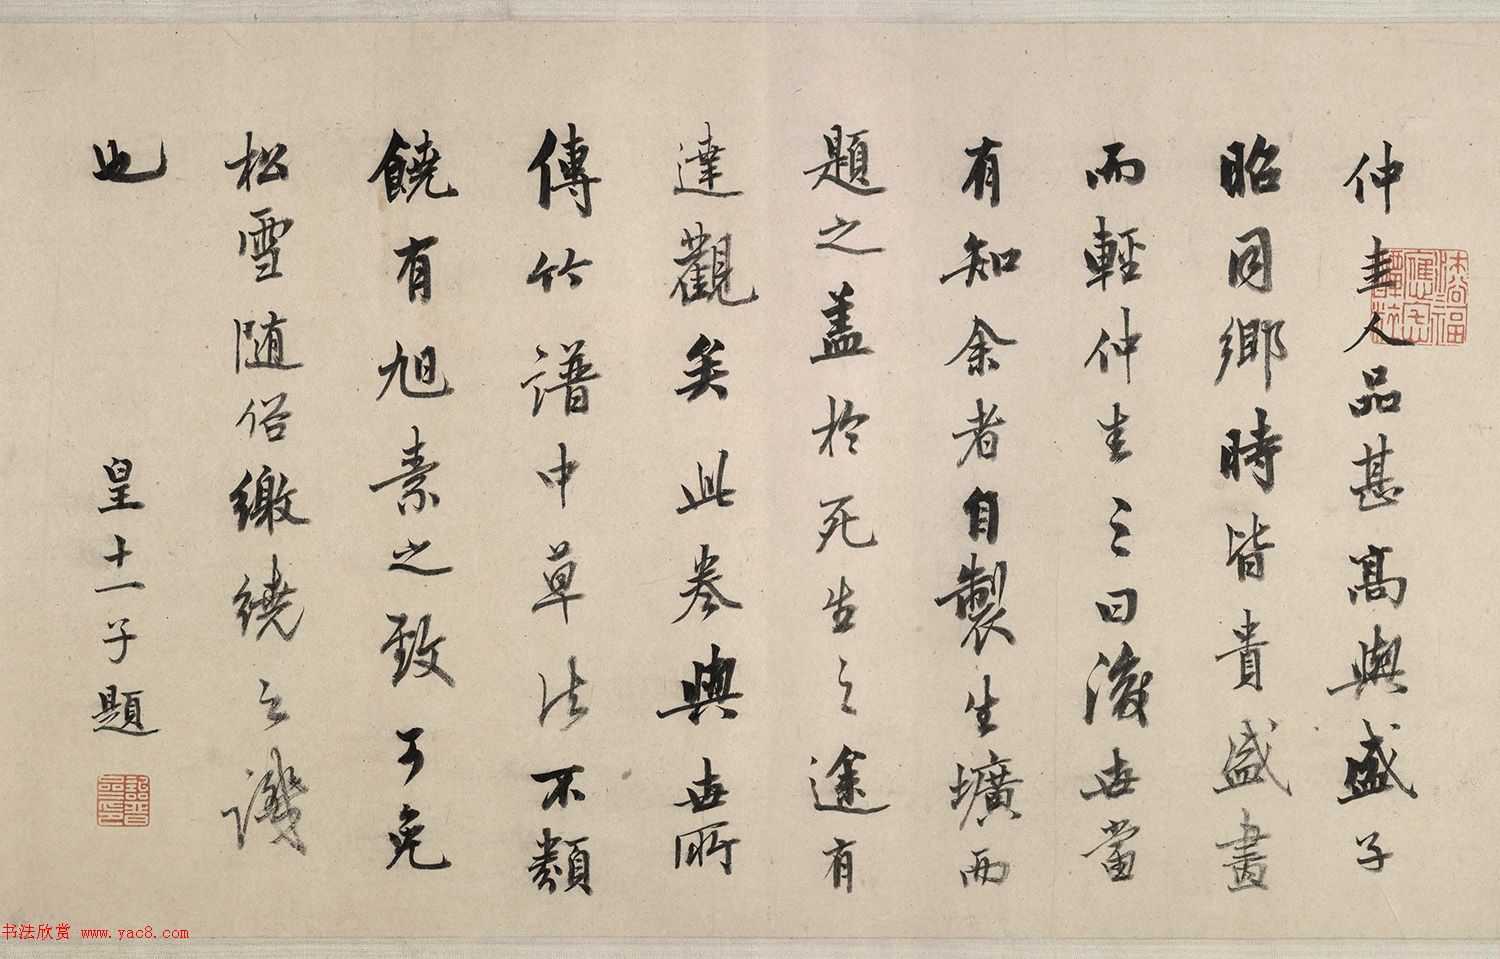 仲圭人品甚高與盛子
昭同鄉時皆貴盛畫
而輕仲圭圭曰後世當
有知余者自製生壙而
題之盖於死生之途有
達觀矣此卷與世所
傳竹譜中草法不類
饒有旭素之致可免
松雪随俗繳繞之譏
也
皇十一子題
书法欣赏 www.yac8.com